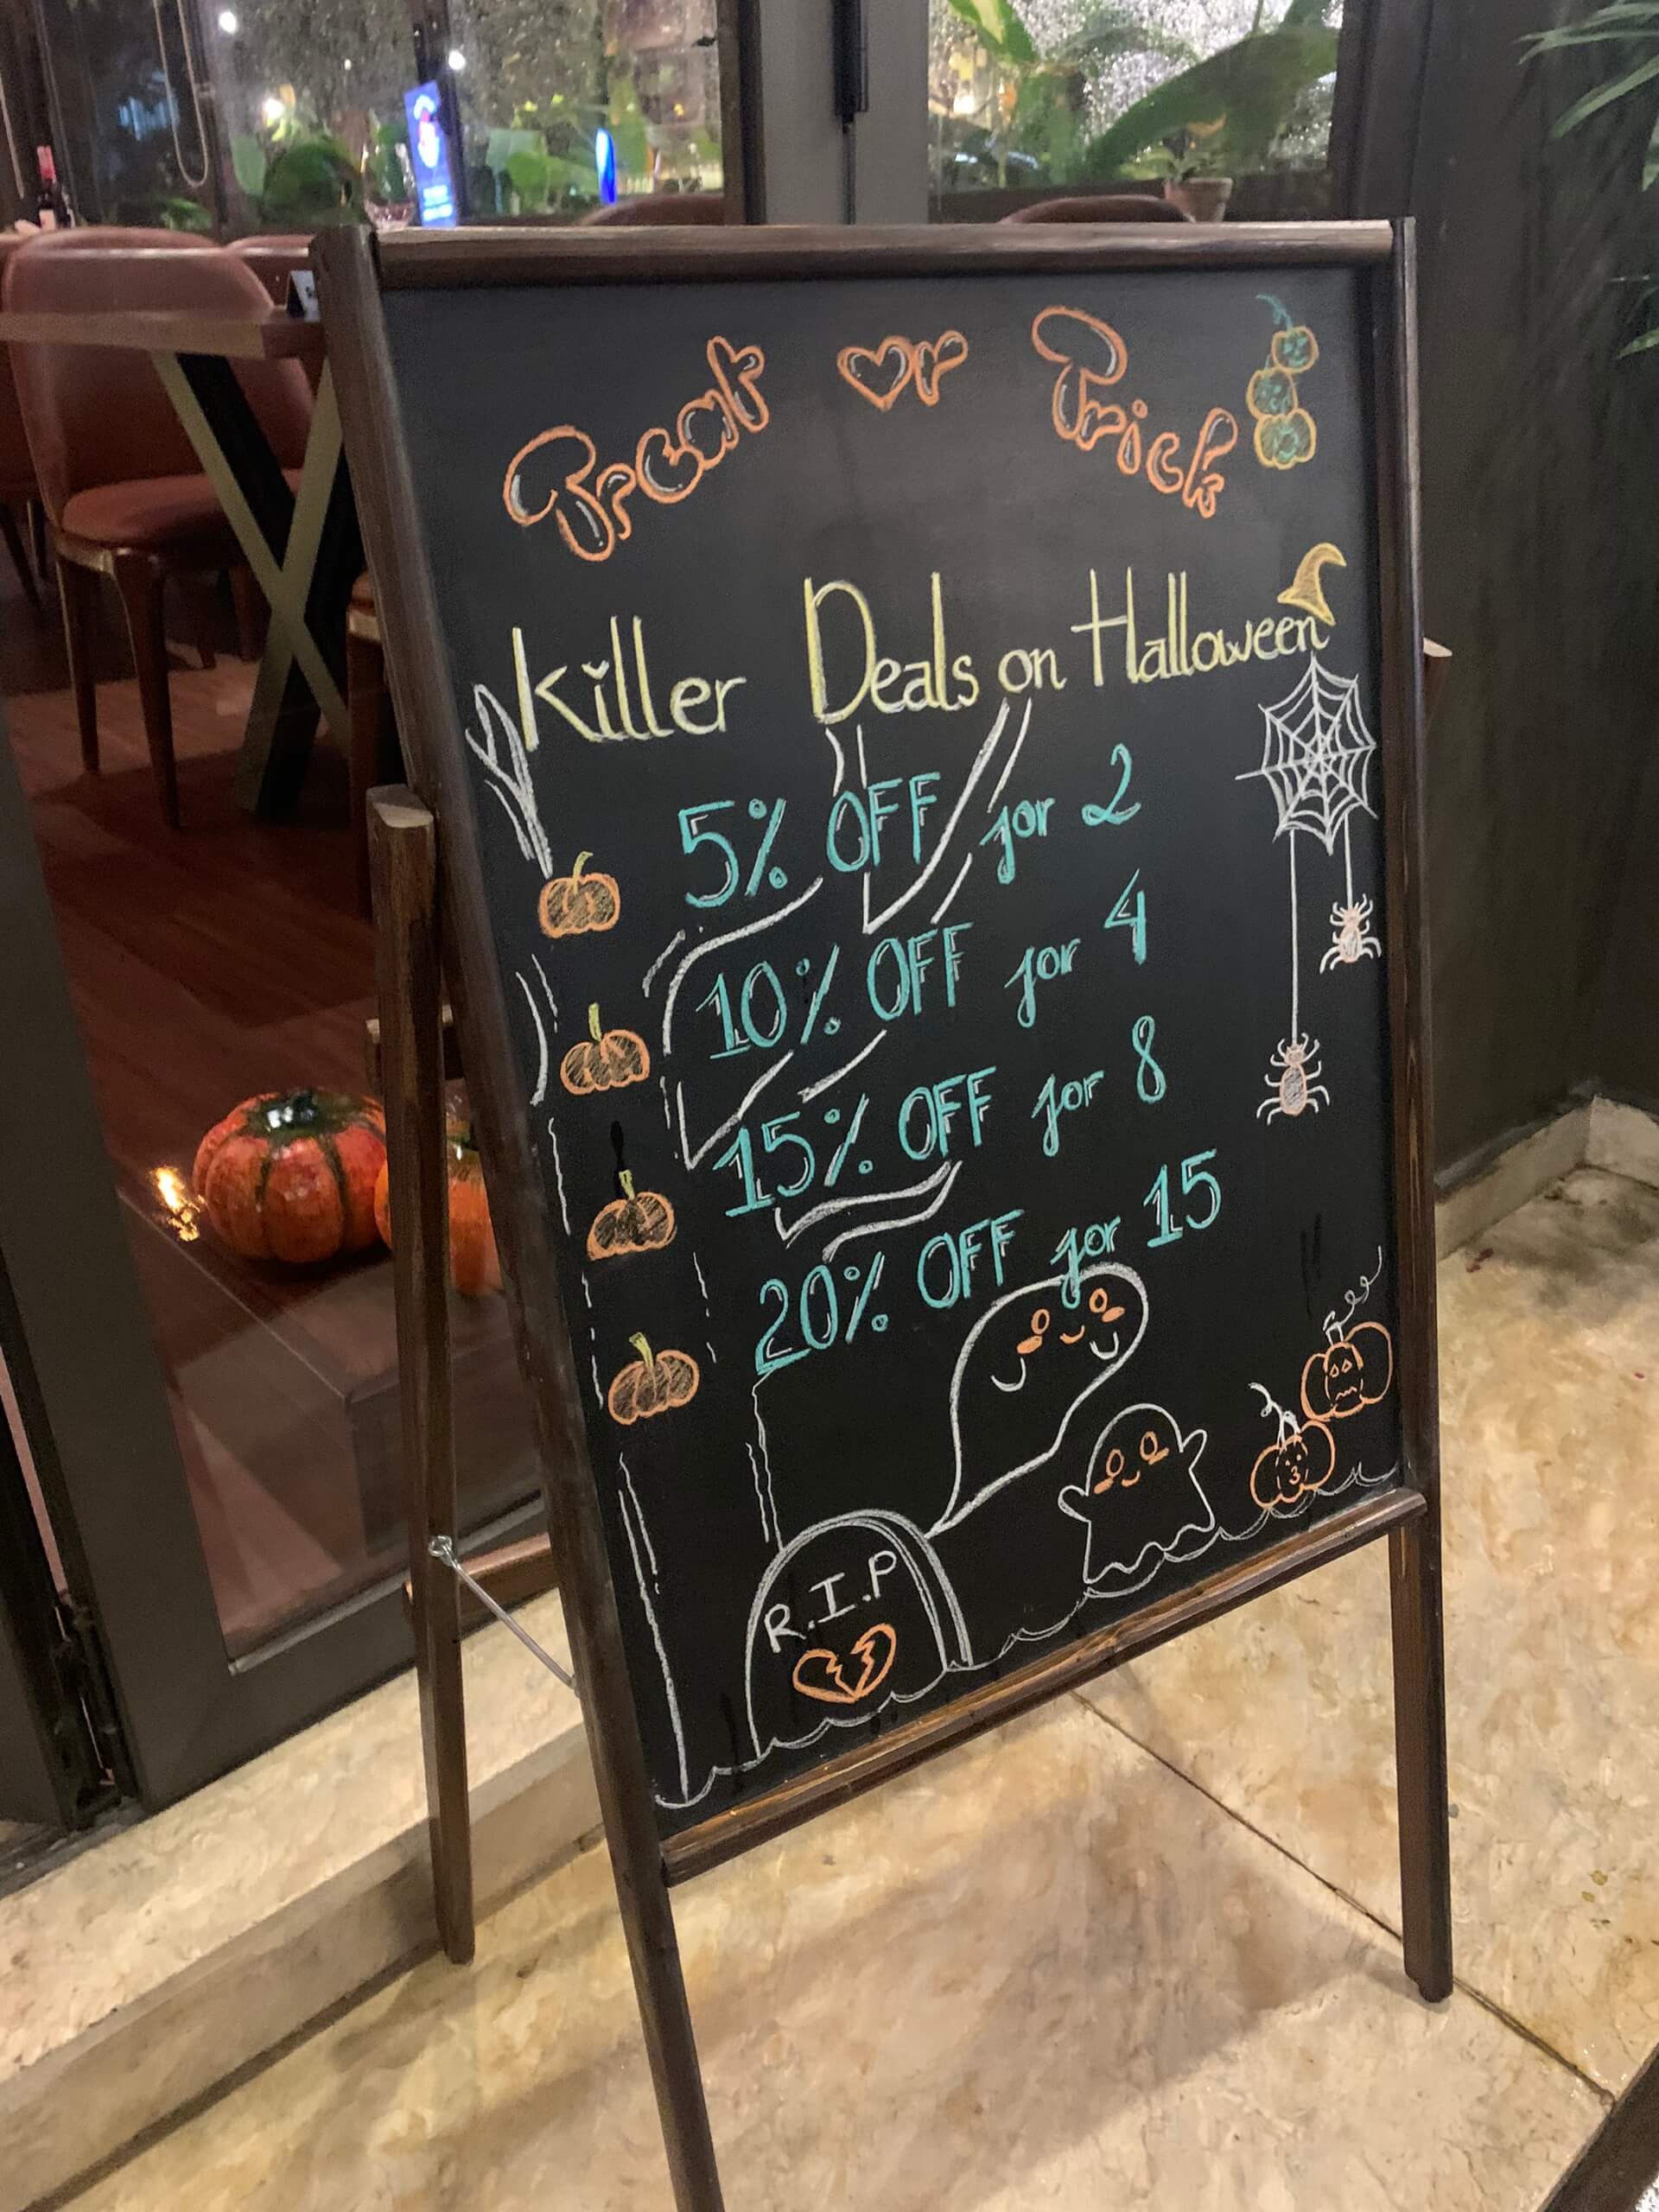 Treat or Trick
Killer Deals on Halloween
5% OFF for 2
10% OFF for 4
15% OFF for 8
20% OFF for 15
R.I.P